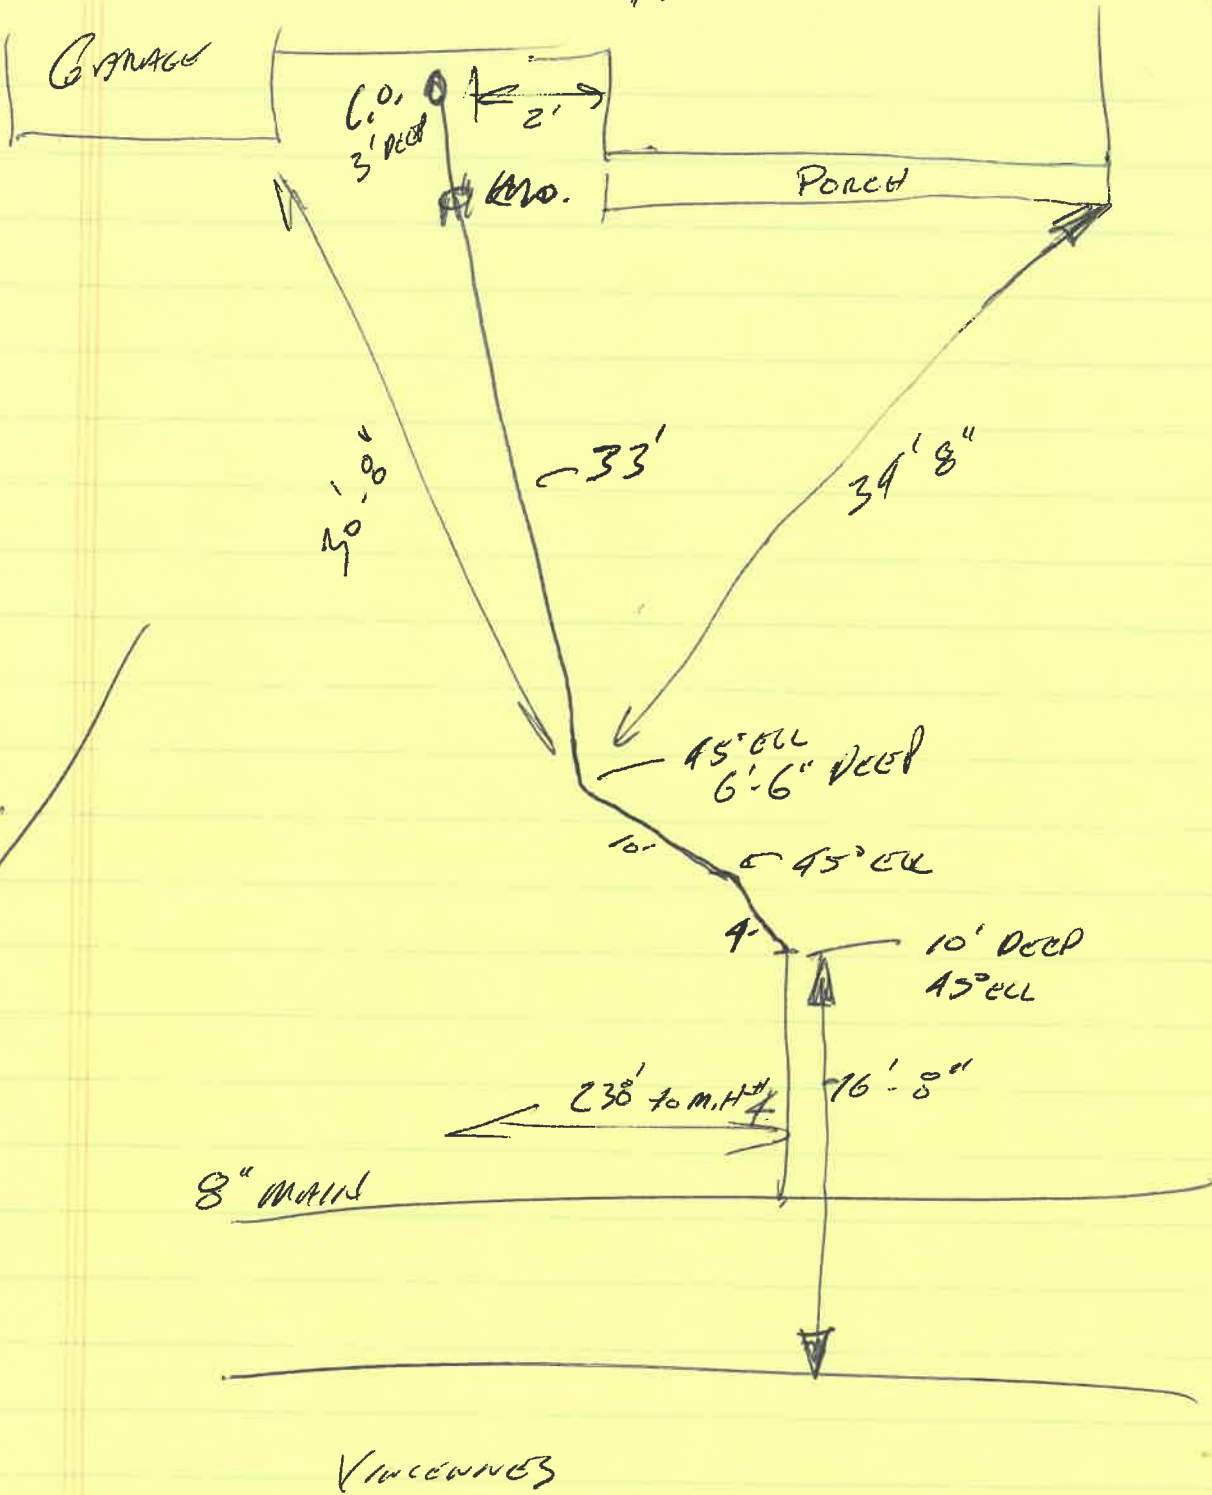 GARAGE
C.O.
3' DEEP
2'
PORCH
33'
40'-8"
39' 8"
45° ELL
6'-6" DEEP
10-
45° ELL
4-
10' DEEP
45° ELL
238' TO M.H#4
16'-8"
8" MAIN
VINCENNES